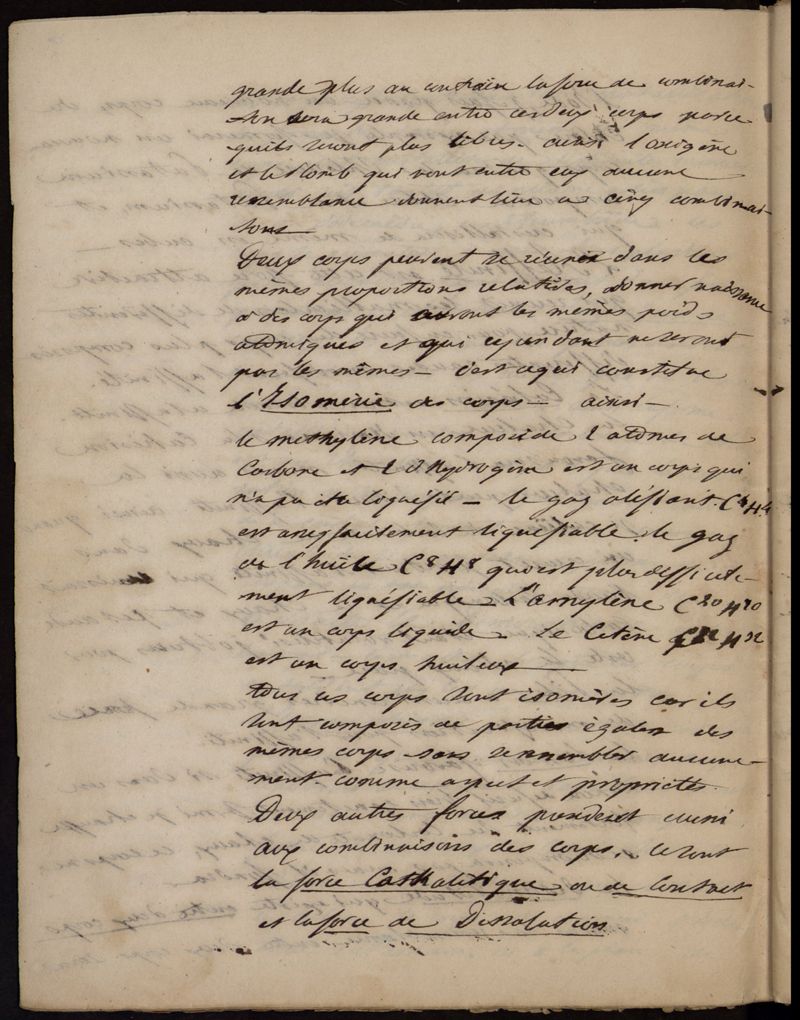 grande plus au contraire la force de combinai-
son sera grande entre ces deux corps parce
qu'ils seront plus libres. ainsi l'oxigène
et le Plomb qui n'ont entre eux aucune
ressemblance donnent lieu a cinq combinai-
sons
Deux corps peuvent se réunir dans les
mêmes proportions relatives, donner naissance
a des corps qui auront les mêmes poids
atomiques et qui cependant ne seront
pas les mêmes — c'est ce qui constitue
l'Isomérie des corps — ainsi —
le methylène composé de 2 atômes de
Carbone et 2 d'Hydrogène est un corps qui
n'a pu être liquéfié — le gaz oléfiant C4 H4
est assez facilement liquéfiable. le gaz
de l'huile C8 H8 est plus difficile-
ment liquéfiable L'amylène C20 H20
est un corps liquide. Le Cetène C32 H32
est un corps huileux —
tous ces corps sont isomères car ils
sont composés de parties égales des
mêmes corps sans ressembler aucune-
ment comme aspect et propriétés.
Deux autres forces president aussi
aux combinaisons des corps. ce sont
la force Cathalitique ou de Contact
et la force de Dissolution